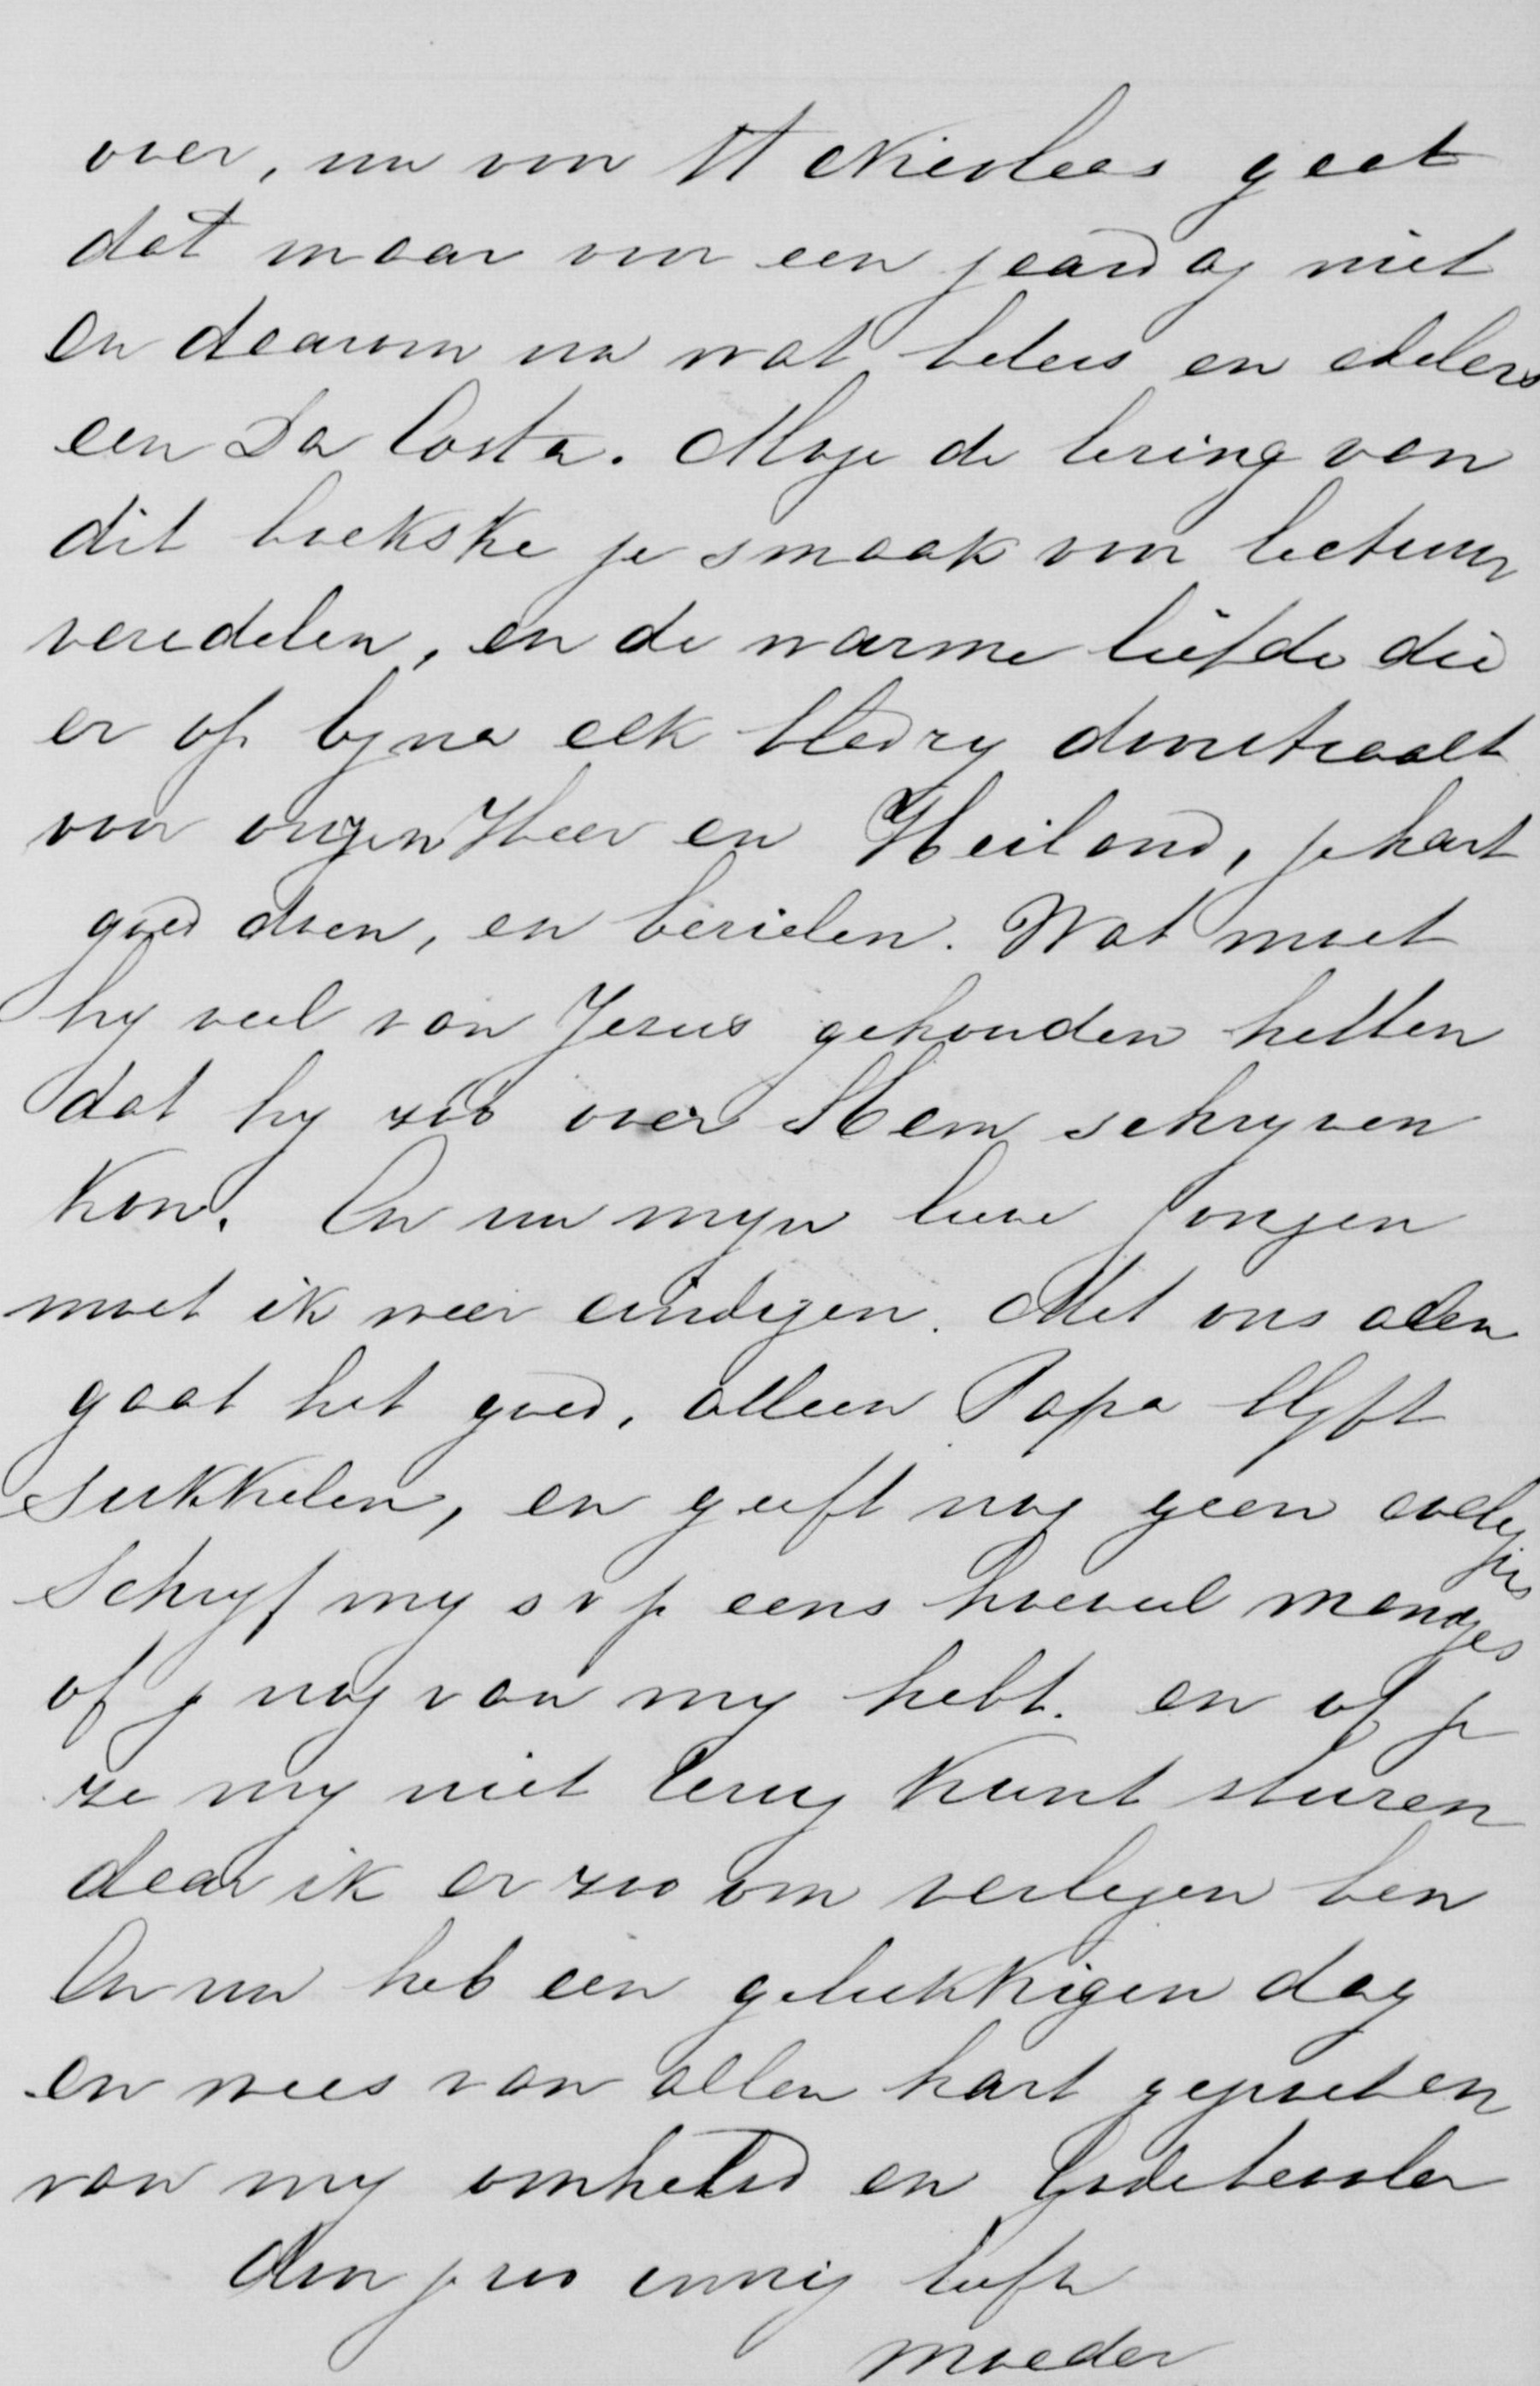 over, nu voor St Nicolaas gaat
dat maar voor een jaardag niet
en daarom nu wat beters en edelers
een Da Costa. Moge de lezing van
dit boekske je smaak voor lectuur
veredelen, en de warme liefde die
er op byna elk bladzy doorstraalt
voor onzen Heer en Heiland, je hart
goed doen, en bezielen. Wat moet
hy veel van Jezus gehouden hebben
dat hy zóó over Hem schryven
kon. En nu myn lieve jongen
moet ik weer eindigen. Met ons allen
gaat het goed, alleen Papa blyft
sukkelen, en geeft nog geen collegies
Schryf my s v p eens hoeveel mandjes
of je nog van my hebt. en of je
ze my niet terug kunt sturen
daar ik er zoo om verlegen ben
En nu heb een gelukkigen dag
en wees van allen hart. gegroet en
van my omhelsd en Gode bevolen
door je zoo innig liefh
moeder